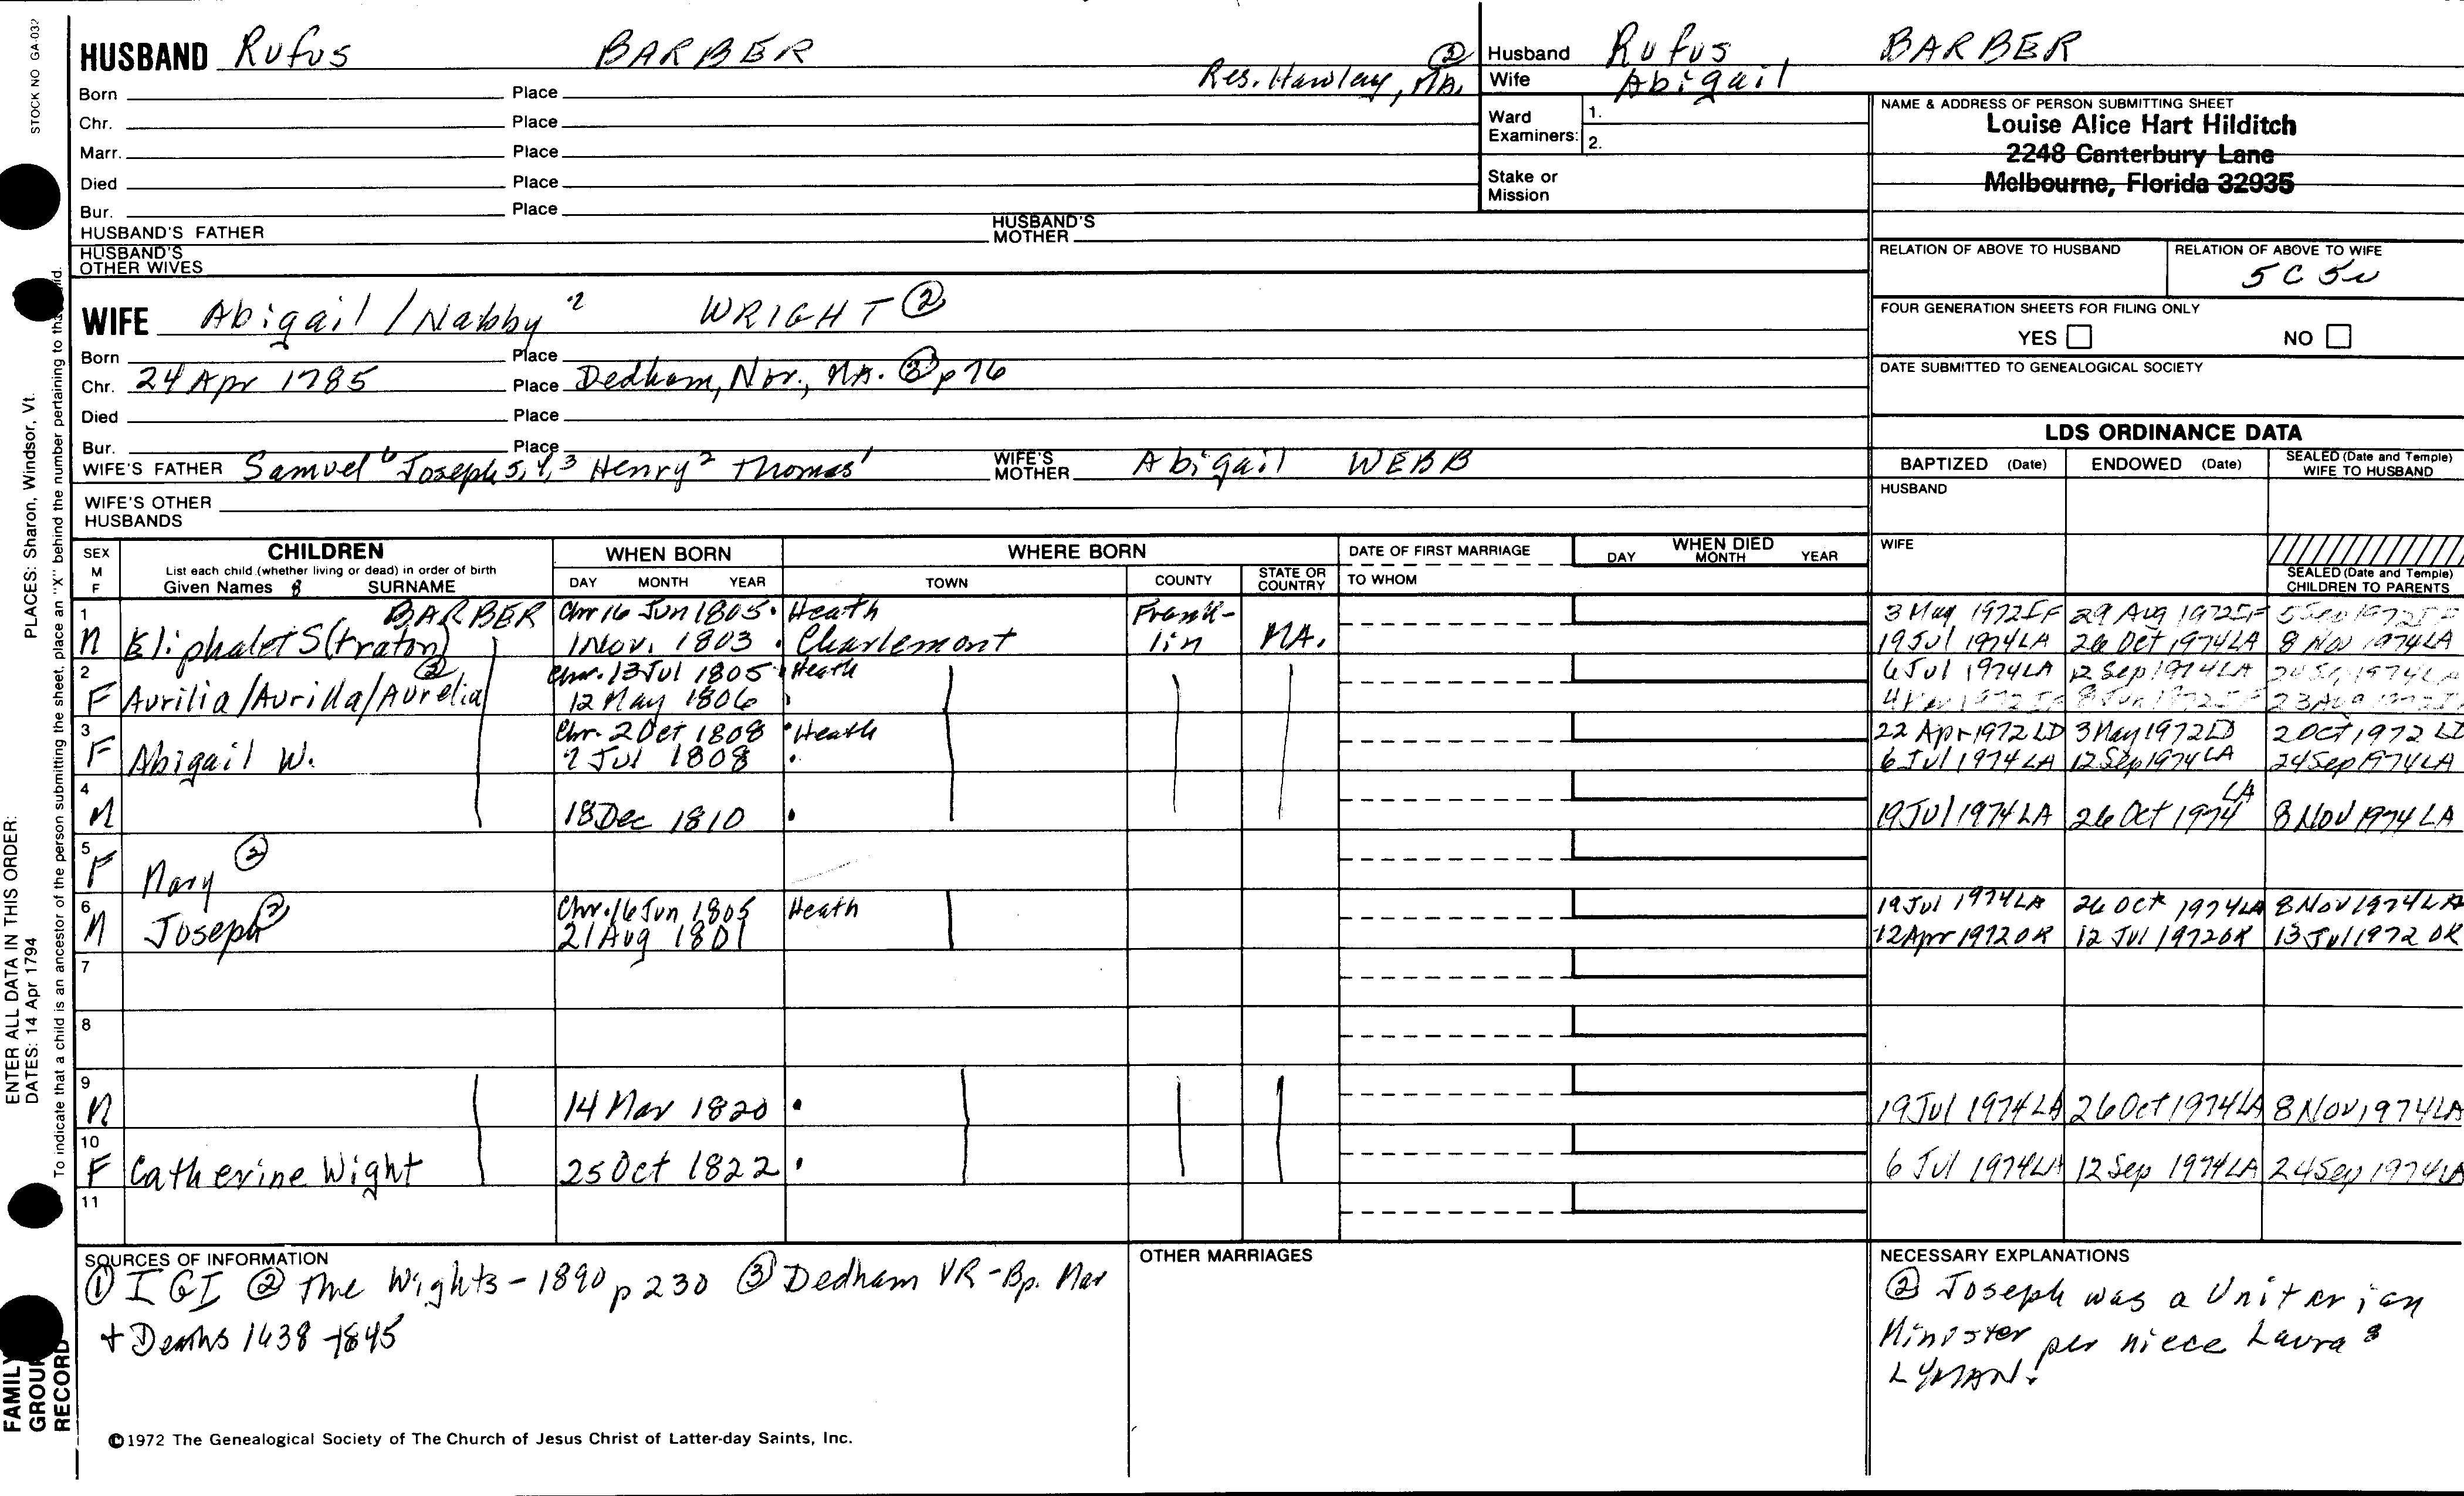 STOCK NO GA-032
HUSBAND Rufus BARBER
Res. Hawley, MA. ②
Born Place
Chr. Place
Marr. Place
Died Place
Bur. Place
HUSBAND'S FATHER HUSBAND'S MOTHER
HUSBAND'S OTHER WIVES
Husband Rufus BARBER
Wife Abigail
Ward Examiners: 1.
2.
Stake or Mission
NAME & ADDRESS OF PERSON SUBMITTING SHEET
Louise Alice Hart Hilditch
2248 Canterbury Lane
Melbourne, Florida 32935
RELATION OF ABOVE TO HUSBAND RELATION OF ABOVE TO WIFE
5C 5
FOUR GENERATION SHEETS FOR FILING ONLY
YES NO
DATE SUBMITTED TO GENEALOGICAL SOCIETY
WIFE Abigail / Nabby WRIGHT ②
Born Place
Chr. 24 Apr 1785 Place Dedham, Nor., MA. ③ p 76
Died Place
Bur. Place
WIFE'S FATHER Samuel 6 Joseph 5,4,3 Henry 2 Thomas 1 WIFE'S MOTHER Abigail WEBB
WIFE'S OTHER HUSBANDS
LDS ORDINANCE DATA
BAPTIZED (Date) ENDOWED (Date) SEALED (Date and Temple) WIFE TO HUSBAND
HUSBAND
WIFE
SEALED (Date and Temple) CHILDREN TO PARENTS
SEX M F CHILDREN WHEN BORN WHERE BORN DATE OF FIRST MARRIAGE WHEN DIED
List each child (whether living or dead) in order of birth
Given Names 8 SURNAME DAY MONTH YEAR TOWN COUNTY STATE OR COUNTRY TO WHOM DAY MONTH YEAR
1 BARBER Chr 16 Jun 1805 Heath Frank- 3 May 1972IF 29 Aug 1972IF 5 Sep 1972IF
M Eliphalet S(traton) 1 Nov. 1803 Charlemont lin MA. 19 Jul 1974LA 26 Oct 1974LA 8 Nov 1974LA
2 ② Chr. 13 Jul 1805 Heath 6 Jul 1974LA 12 Sep 1974LA 24 Sep 1974LA
F Aurilia/Aurilla/Aurelia 12 May 1806
3 Chr. 2 Oct 1808 Heath 22 Apr 1972 LD 3 May 1972LD 2 Oct 1972 LD
F Abigail W. 2 Jul 1808 6 Jul 1974 LA 12 Sep 1974 LA 24 Sep 1974 LA
4
M 18 Dec 1810 19 Jul 1974 LA 26 Oct 1974 LA 8 Nov 1974 LA
5
F Mary ②
6 Chr. 16 Jun 1805 Heath 19 Jul 1974 LA 26 Oct 1974LA 8 Nov 1974 LA
M Joseph ② 21 Aug 1801 12 Apr 1972 OK 12 Jul 1972 OK 13 Jul 1972 OK
7
8
9
M 14 Mar 1820 19 Jul 1974 LA 26 Oct 1974 LA 8 Nov 1974 LA
10
F Catherine Wight 25 Oct 1822 6 Jul 1974LA 12 Sep 1974 LA 24 Sep 1974 LA
11
SOURCES OF INFORMATION
① IGI ② The Wights-1890 p 230 ③ Dedham VR-Bp. Mar
+ Deaths 1638-1845
OTHER MARRIAGES
NECESSARY EXPLANATIONS
② Joseph was a Unitarian
Minister per niece Laura 8
LYMAN!
©1972 The Genealogical Society of The Church of Jesus Christ of Latter-day Saints, Inc.
FAMILY GROUP RECORD
ENTER ALL DATA IN THIS ORDER:
DATES: 14 Apr 1794 PLACES: Sharon, Windsor, Vt.
To indicate that a child is an ancestor of the person submitting the sheet, place an "X" behind the number pertaining to that child.